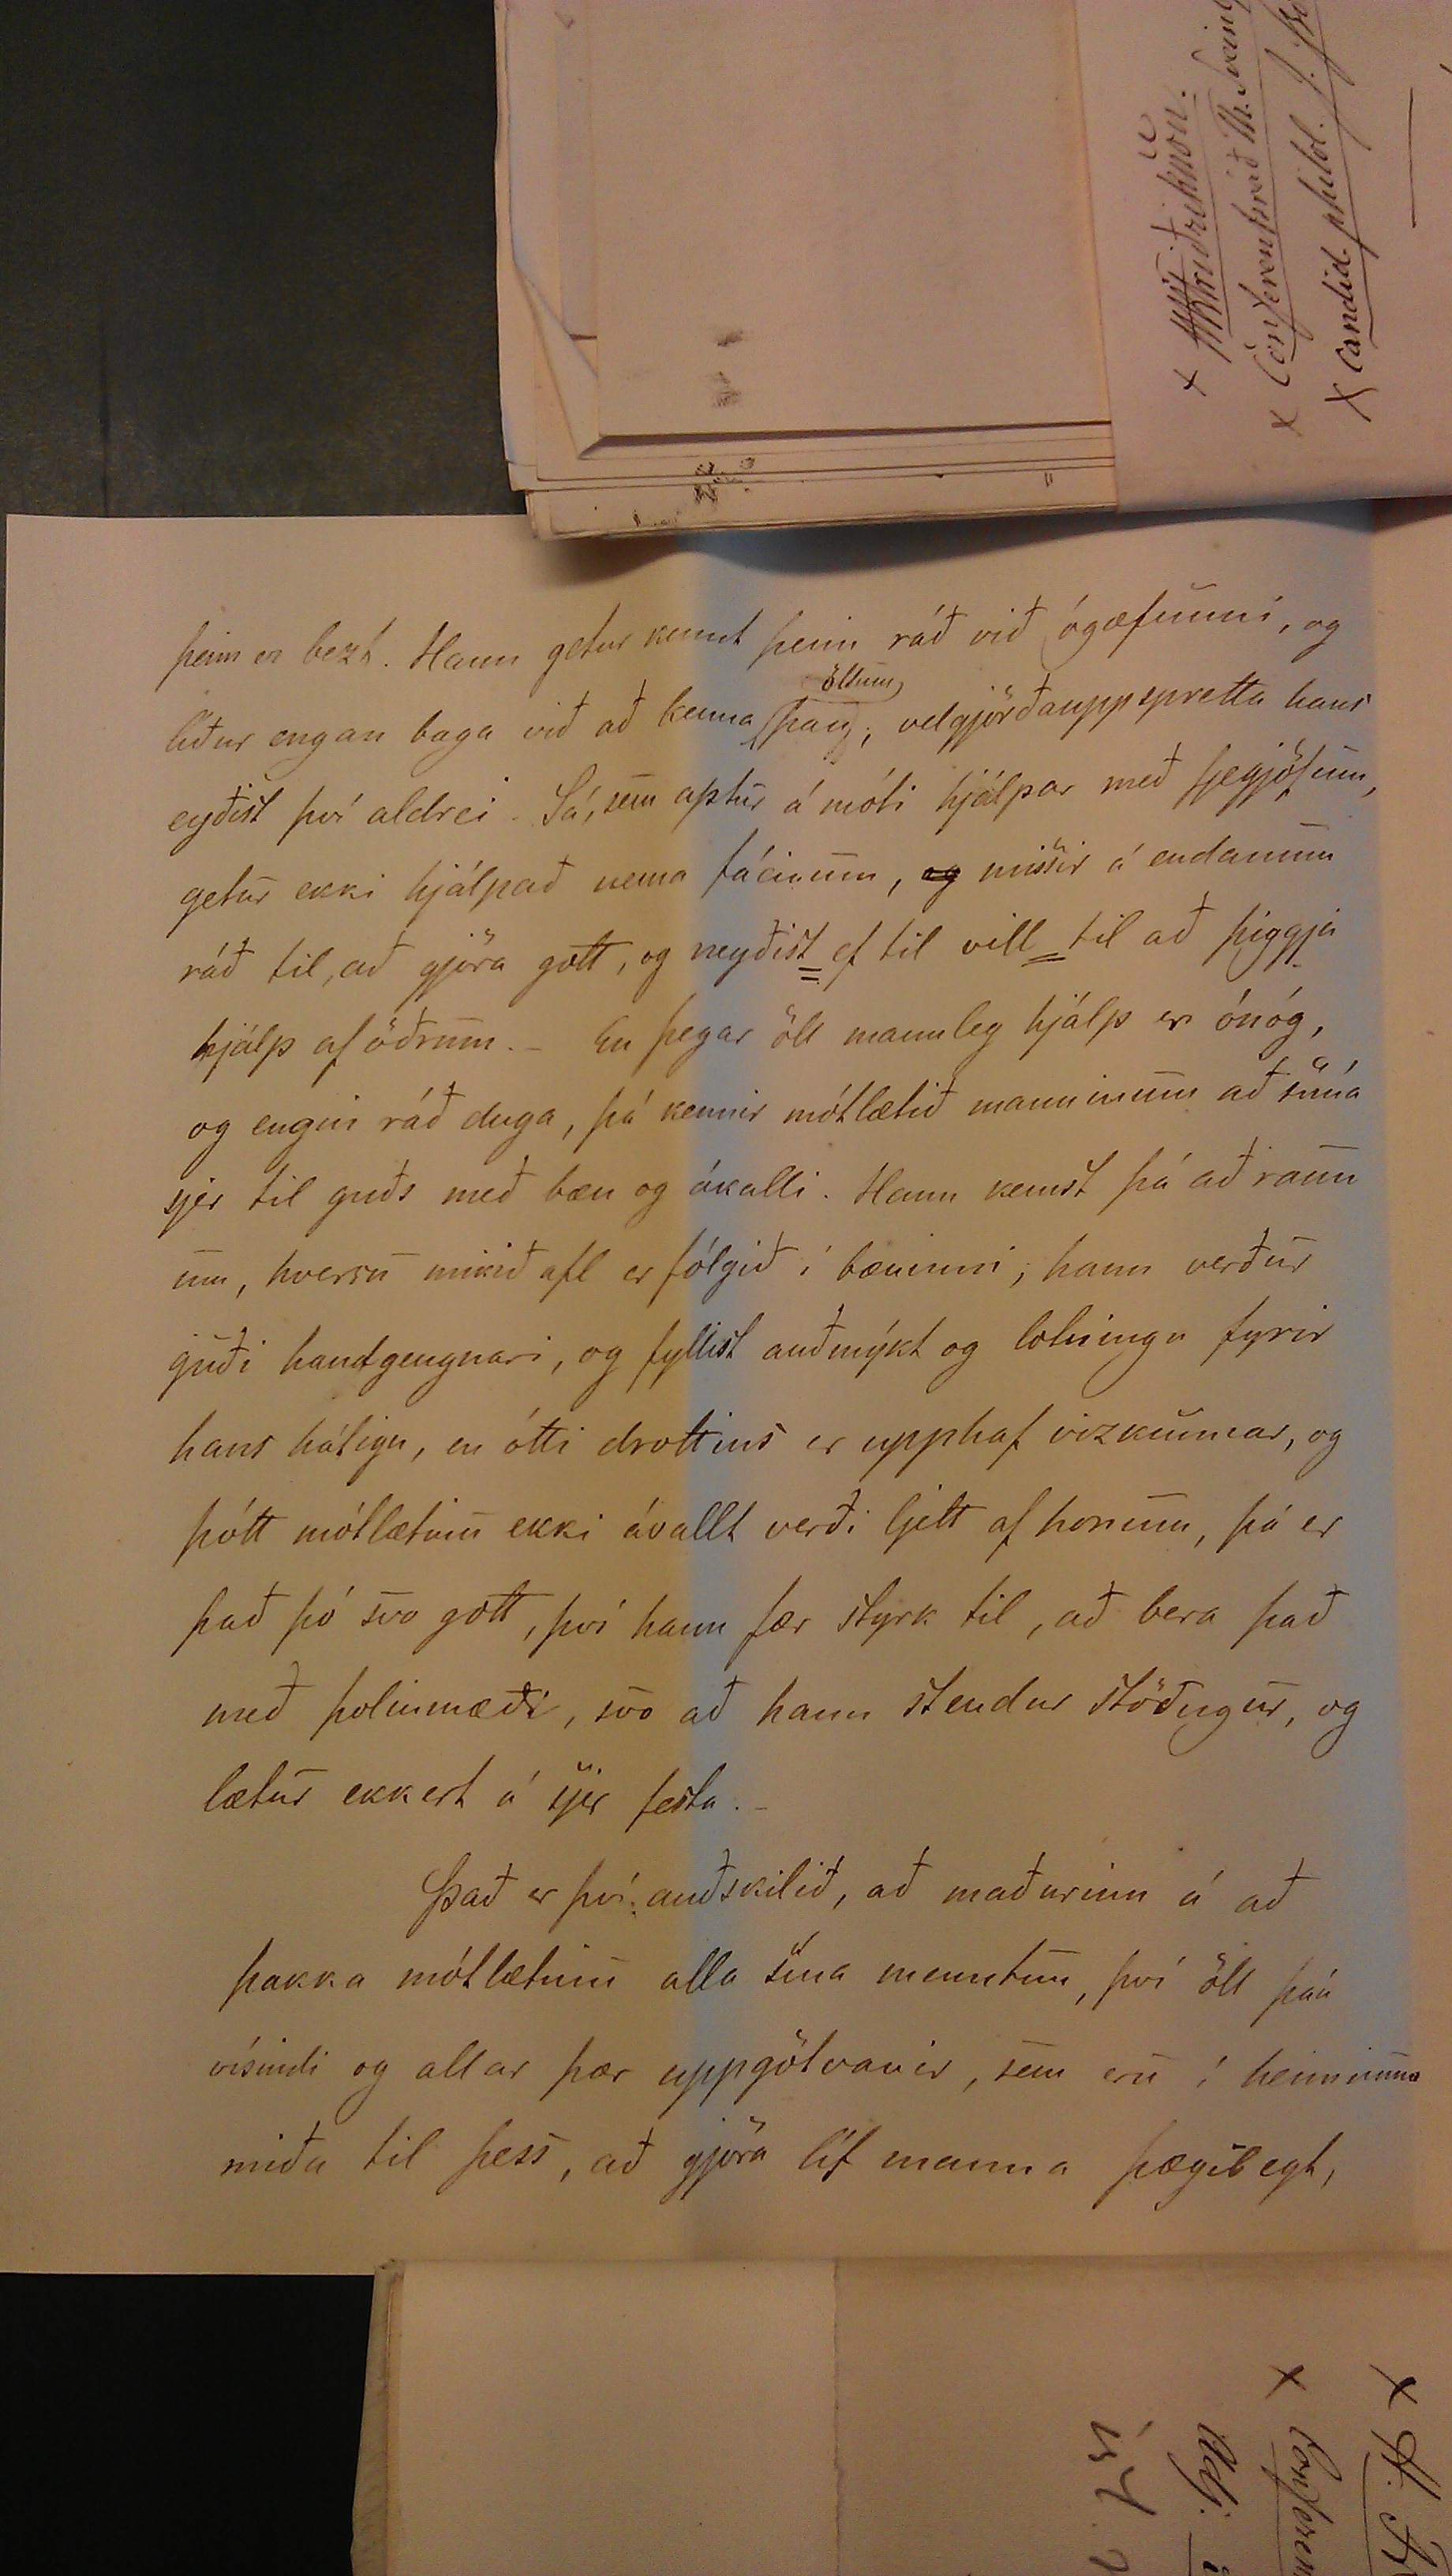 Friðriksson.
Conferentsráð Th. Sveinb
Candid. philol. J. Þo
þeim er bezt. Hann getur kennt þeim ráð við ógæfunni, og
líður engan baga við að kenna öllum þau; velgjörðauppspretta hans
eyðist því aldrei. Sá, sem aptur á móti hjálpar með fjegjöfum,
getur ekki hjálpað nema fáeinum, og missir á endanum
ráð til, að gjöra gott, og neyðist ef til vill til að þiggja
hjálp af öðrum. – En þegar öll mannleg hjálp er ónóg,
og engin ráð duga, þá kennir mótlætið manninum að snúa
sjer til guðs með bæn og ákalli. Hann kemst þá að raun
um, hversu mikið afl er fólgið í bæninni; hann verður
guði handgengnari, og fyllist auðmýkt og lotningu fyrir
hans hátign, en ótti drottins er upphaf vizkunnar, og
þótt mótlætinu ekki ávallt verði ljett af honum, þá er
það þó svo gott, því hann fær styrk til, að bera það
með þolinmæði, svo að hann stendur stöðugur, og
lætur ekkert á sjer festa. –
Það er því auðskilið, að maðurinn á að
þakka mótlætinu alla sína menntun, því öll þau
vísindi og allar þær uppgötvanir, sem eru í heiminum
miða til þess, að gjöra líf manna þægilegt,
H. Fr
Conferen
Adj.